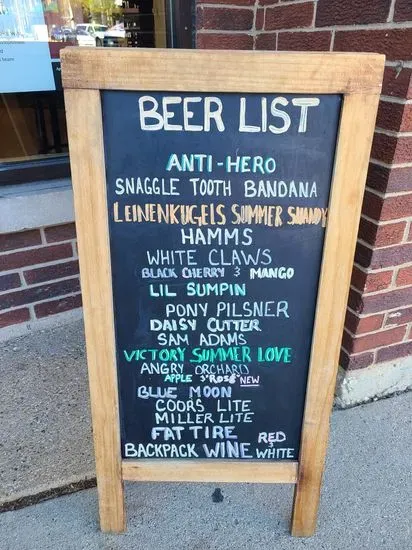 BEER LIST
ANTI-HERO
SNAGGLE TOOTH BANDANA
LEINENKUGELS SUMMER SHANDY
HAMMS
WHITE CLAWS
BLACK CHERRY & MANGO
LIL SUMPIN
PONY PILSNER
DAISY CUTTER
SAM ADAMS
VICTORY SUMMER LOVE
ANGRY ORCHARD
APPLE & "ROSÉ" NEW
BLUE MOON
COORS LITE
MILLER LITE
FAT TIRE
BACKPACK WINE RED & WHITE